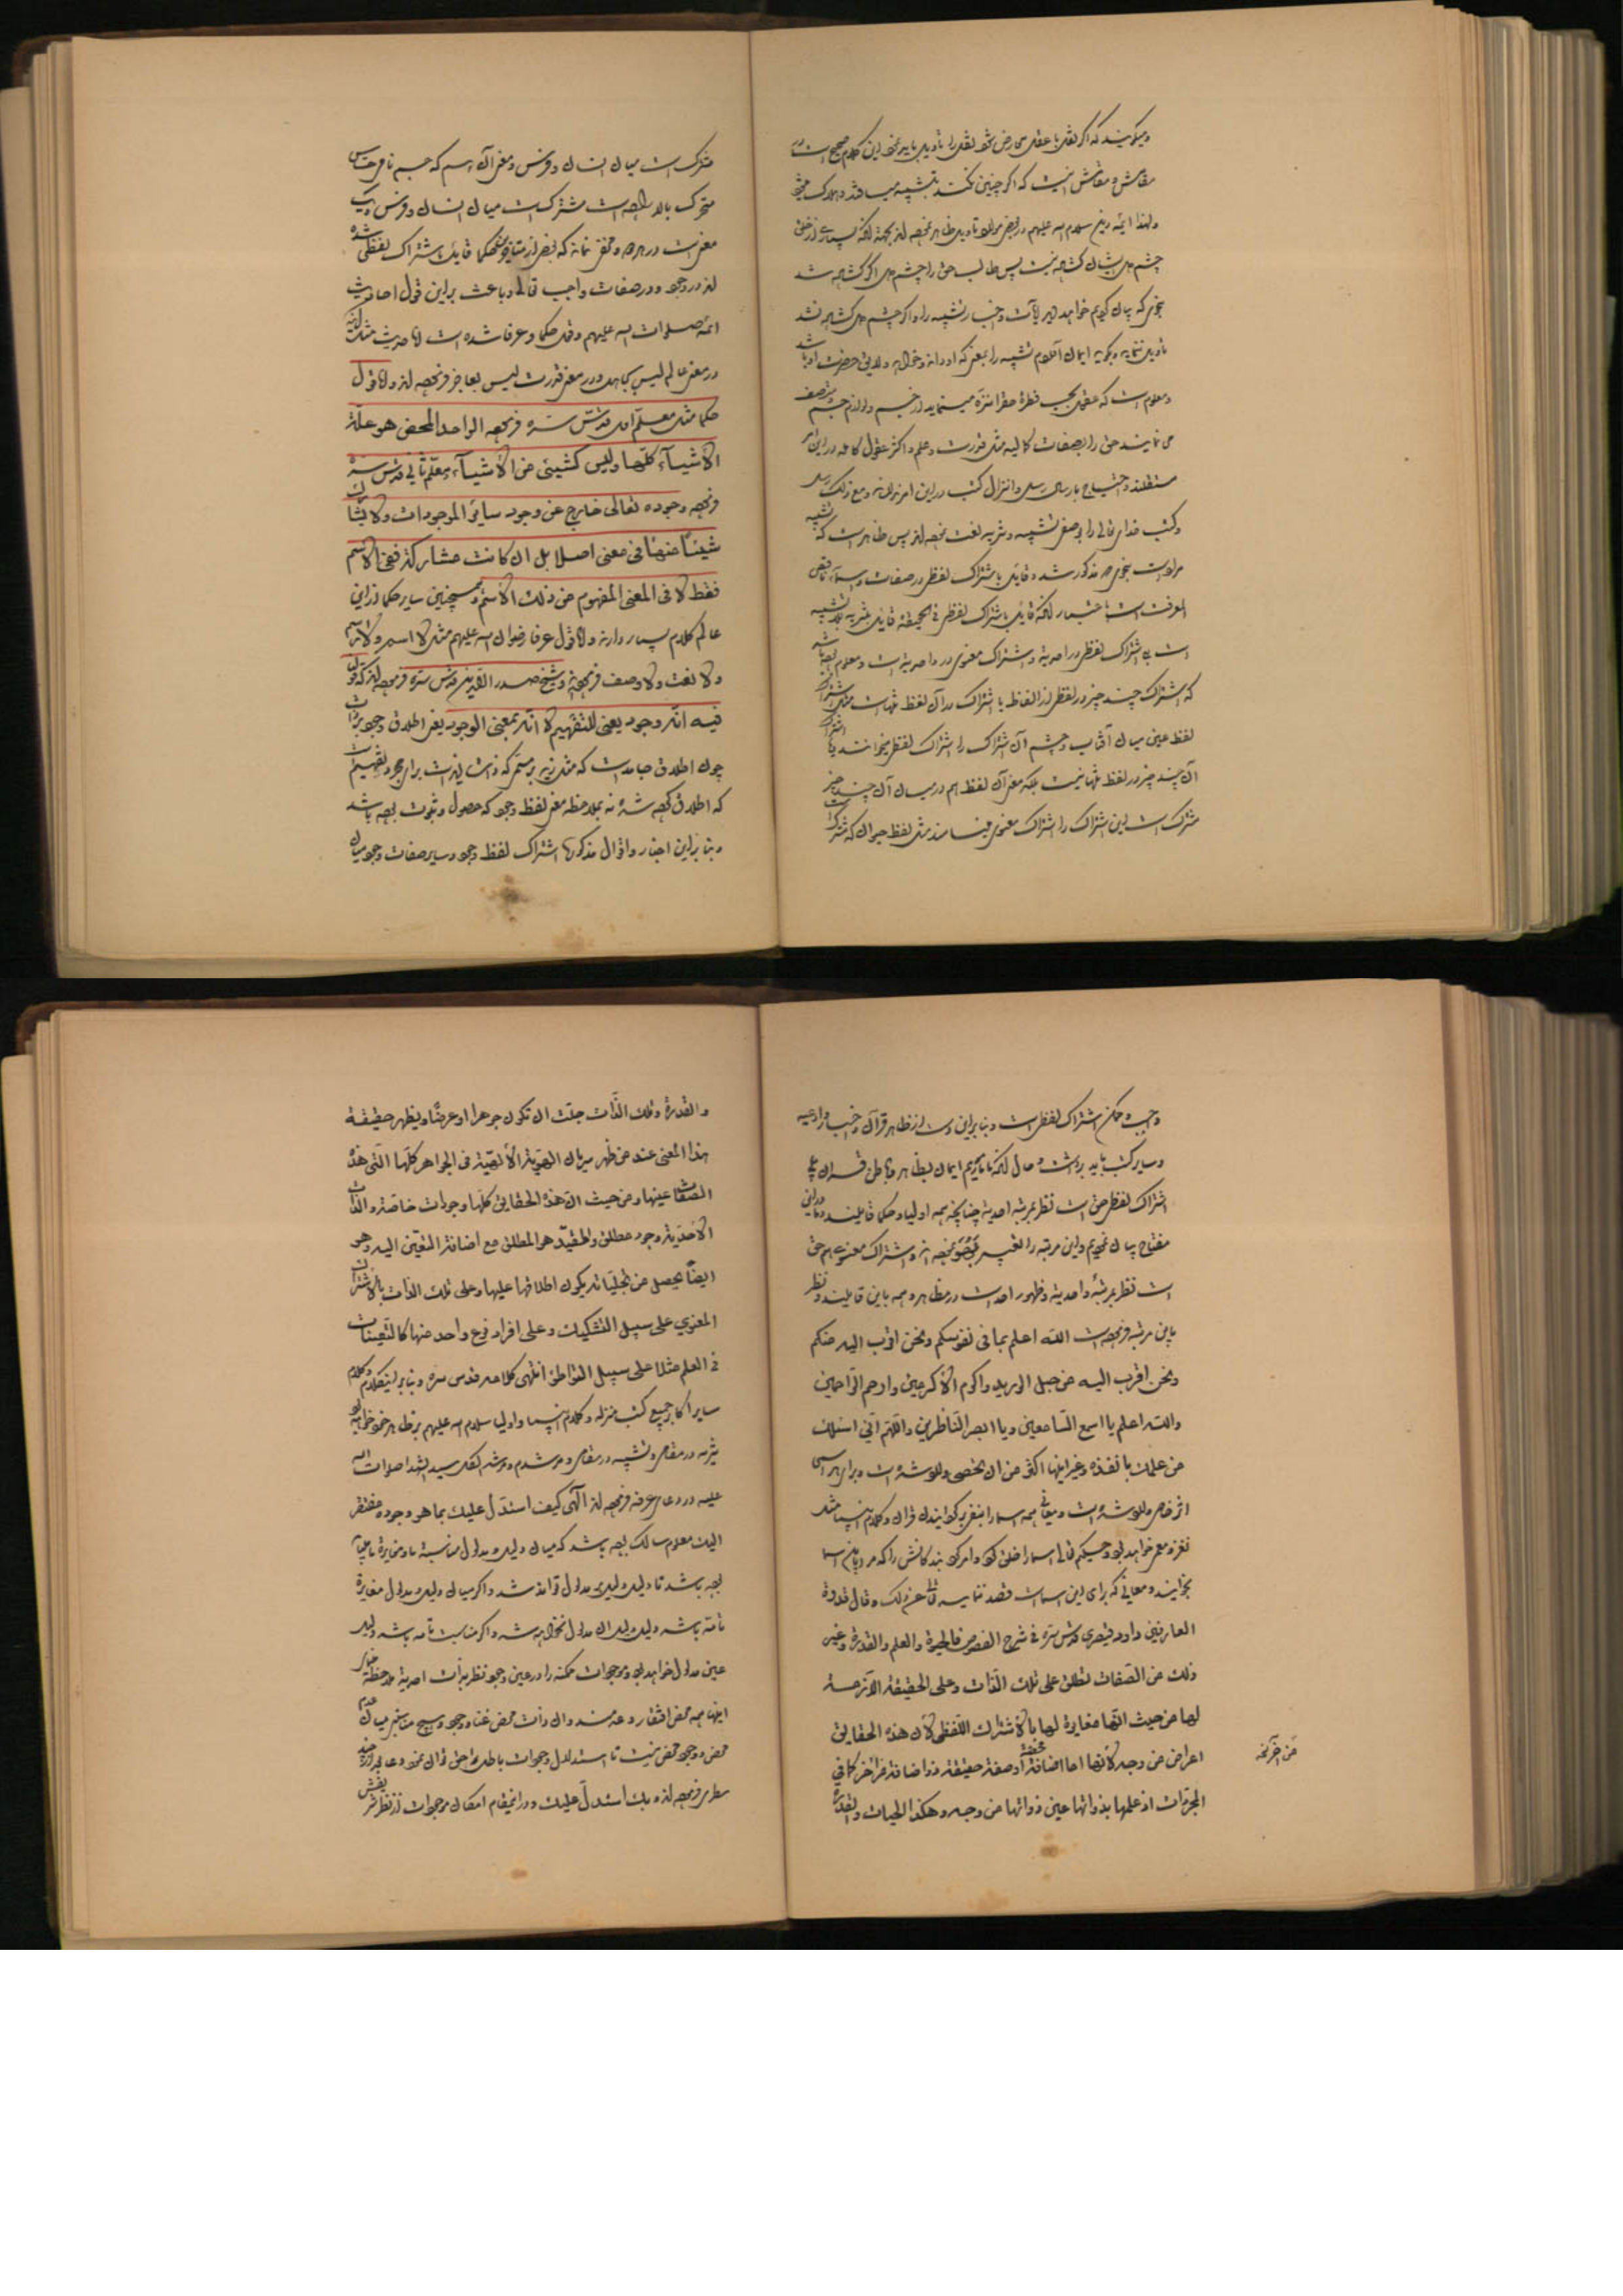 و میگویند که اگر نقل با عقل معارض شود نقل را تأویل باید نمود این کلام صحیح است
که اگر چنین نکنند بتشبیه میافتد و هلاک میشود
و لهذا ائمه دین سلام الله علیهم در بعضی تأویل ظاهر نموده اند بجهة آنکه بسیاری از خلق
چشم دل ایشان گشوده نیست پس طالب حق را چشم دل اگر گشوده شد
بنحوی که بیان کردیم خواهد آیات و اخبار تشبیه را و اگر چشم دل گشوده نشد
تأویل ننماید و بگوید ایمان آوردم تشبیه را بمعنی که او داند و رسول او و لایق حضرت او باشد
و معلوم است که عقل بحسب فطرة حق را منزه مینماید از جسم و لوازم جسم و متصف
می نمایند حق را بصفات کمالیه مثل قدرت و علم و اکثر عقول کامله در این امر
مستقلند و احتیاج بارسال رسل و انزال کتب در این امر ندارند و مع ذلک رسل
و کتب خدای تعالی را بوصف تشبیه و تنزیه نعت نموده اند پس ظاهر است که تشبیه
مراد است بنحوی که مذکور شد و قایل باشتراک لفظی در صفات و اسماء ناقص
المعرفت است باعتبار آنکه قایل باشتراک لفظی فی الحقیقة قایل بتنزیه بلا تشبیه
است بلی اشتراک لفظی در احدیة و اشتراک معنوی در واحدیة است و معلوم بوده باشد
که اشتراک چند چیز در لفظی از الفاظ یا اشتراک در آن لفظ تنهاست مثل اشتراک
لفظ عین میان آفتاب و چشم آن اشتراک را اشتراک لفظی میخوانند یا اشتراک
آن چند چیز در لفظ تنها نیست بلکه معنی آن لفظ هم در میان آن چند چیز
مشترک است این اشتراک را اشتراک معنوی مینامند مثل لفظ حیوان که مشترک
مشترک است میان انسان و فرس و معنی آن هم که جسم نامی حساس
متحرک بالاراده است مشترک است میان انسان و فرس و یک
معنی است در هر دو و مخفی نماند که بعضی از متأخرین حکما قایل باشتراک لفظی شده
اند در وجود و در صفات واجب تعالی و باعث بر این قول احادیث
ائمه صلوات الله علیهم و قول حکما و عرفا شده است اما حدیث مثل آنکه
در معنی عالم لیس بجاهل و در معنی قدرت لیس بعاجز فرموده اند و اما قول
حکما مثل معلم اول قدس سره فرموده الواحد المحض هو علة
الاشیاء کلها و لیس کشیئ من الاشیاء و معلم ثانی قدس سره
فرموده وجوده تعالی خارج عن وجود سایر الموجودات و لا یشارک
شیئا منها فی معنی اصلا بل ان کانت مشارکة ففی الاسم
فقط لا فی المعنی المفهوم من ذلک الاسم و همچنین سایر حکما از این
عالم کلام بسیار دارند و اما قول عرفا رضوان الله علیهم مثل لا اسم و لا رسم
و لا نعت و لا وصف فرموده اند و شیخ صدرالدین قدس سره فرموده اند که قولنا
فیه انه وجود یعنی للتفهیم لا انه بمعنی الوجود یعنی اطلاق وجود بر ذات
چون اطلاق جامد است که مثل زید بر مسمی که ذات زید است برای مجرد تفهیم است
که اطلاق کرده شده نه بملاحظه معنی لفظ وجود که حصول و ثبوت بوده باشد
و بنا بر این اخبار و اقوال مذکوره اشتراک لفظ وجود و سایر صفات وجود میان
واجب و ممکن اشتراک لفظی است و بنا بر این دست از ظاهر قرآن و اخبار و ادعیه
و سایر کتب باید برداشت و حال آنکه ما مأموریم ایمان بظاهر و باطن قرآن بلی
اشتراک لفظی حق است نظر بمرتبه احدیة چنانچه همه اولیا و حکما قایلند و ما در این
مفتاح بیان نمودیم و این مرتبه را تعبیر بوجود نموده اند و اشتراک معنوی هم حق
است نظر بمرتبه واحدیة و ظهور احدیت در مظاهر و همه باین قایلند و نظر
باین مرتبه فرموده است الله اعلم بما فی نفوسکم و نحن اقرب الیه منکم
و نحن اقرب الیه من حبل الورید و اکرم الاکرمین و ارحم الراحمین
و الله اعلم یا اسمع السامعین و یا ابصر الناظرین و اللهم انی اسئلک
من علمک بانفذه و غیر اینها اکثر من ان یحصی وارد شده است و برای هر اسمی
اثر خاص وارد شده است و معانی همه اسما را
لغز و معمی خواهد بود و حکیم تعالی اسما را خلق کرد و امر کرد بندگانش را که مرا باین اسما
بخوانید و معانی که برای این اسماست قصد ننمایید تعالی عن ذلک و قال قدوة
العارفین داود قیصری قدس سره فی شرح الفصوص فالحیوة و العلم و القدرة و غیر
ذلک من الصفات تطلق علی تلک الذات و علی الحقیقة اللازمة
لها من حیث انها مغایرة لها بالاشتراک اللفظی لان هذه الحقایق
اعراض من وجه لانها اما اضافة محضة او صفة حقیقة ذو اضافة و جواهر من وجه آخر کما فی
من آخر کما
المجردات اذ علمها بذواتها عین ذواتها من وجه و هکذا الحیات و القدرة
و القدرة و تلک الذات جلت ان تکون جوهرا او عرضا و یظهر حقیقة
هذا المعنی عند من ظهر سریان الهویة الالهیة فی الجواهر کلها التی هذه
الصفات عینها و من حیث ان هذه الحقایق کلها وجودات خاصة و الذات
الاحدیة وجود مطلق و المقید هو المطلق مع اضافة التعین الیه و هو
ایضا یحصل من تجلیاته یکون اطلاقها علیها و علی تلک الذات بالاشتراک
المعنوی علی سبیل التشکیک و علی افراد نوع واحد منها کالتعینات
فی العلم مثلا علی سبیل التواطؤ انتهی کلامه قدس سره و بنابر این کلام و کلام
سایر اکابر جمیع کتب منزله و کلام انبیا و اولیا سلام الله علیهم بر ظاهر خود خواهد بود
تنزیه در مقامی و تشبیه در مقامی و مرشدم و مرشد الکل سید الشهدا صلوات الله
علیه در دعای عرفه فرموده اند الهی کیف استدل علیک بما هو وجوده مفتقر
الیک معلوم سالک بوده باشد که میان دلیل و مدلول مناسبة ما و مغایرة ما میباید
بوده باشد تا دلیل دلیل مدلول تواند شد و اگر میان دلیل و مدلول مغایرة
تامه باشد دلیل دلیل آن مدلول نخواهد شد و اگر مناسبت تامه باشد دلیل
عین مدلول خواهد بود و موجودات ممکنه را در عین وجود نظر بذات احدیة ملاحظه
اینها همه محض افتقار و عدمند و آن ذات محض غنا و وجود و هیچ مناسبتی میان عدم
محض و وجود محض نیست تا استدلال وجودات باطله بوجود حق توان نمود
فرموده اند بک استدل علیک و در این مقام امکان موجودات از نظرش